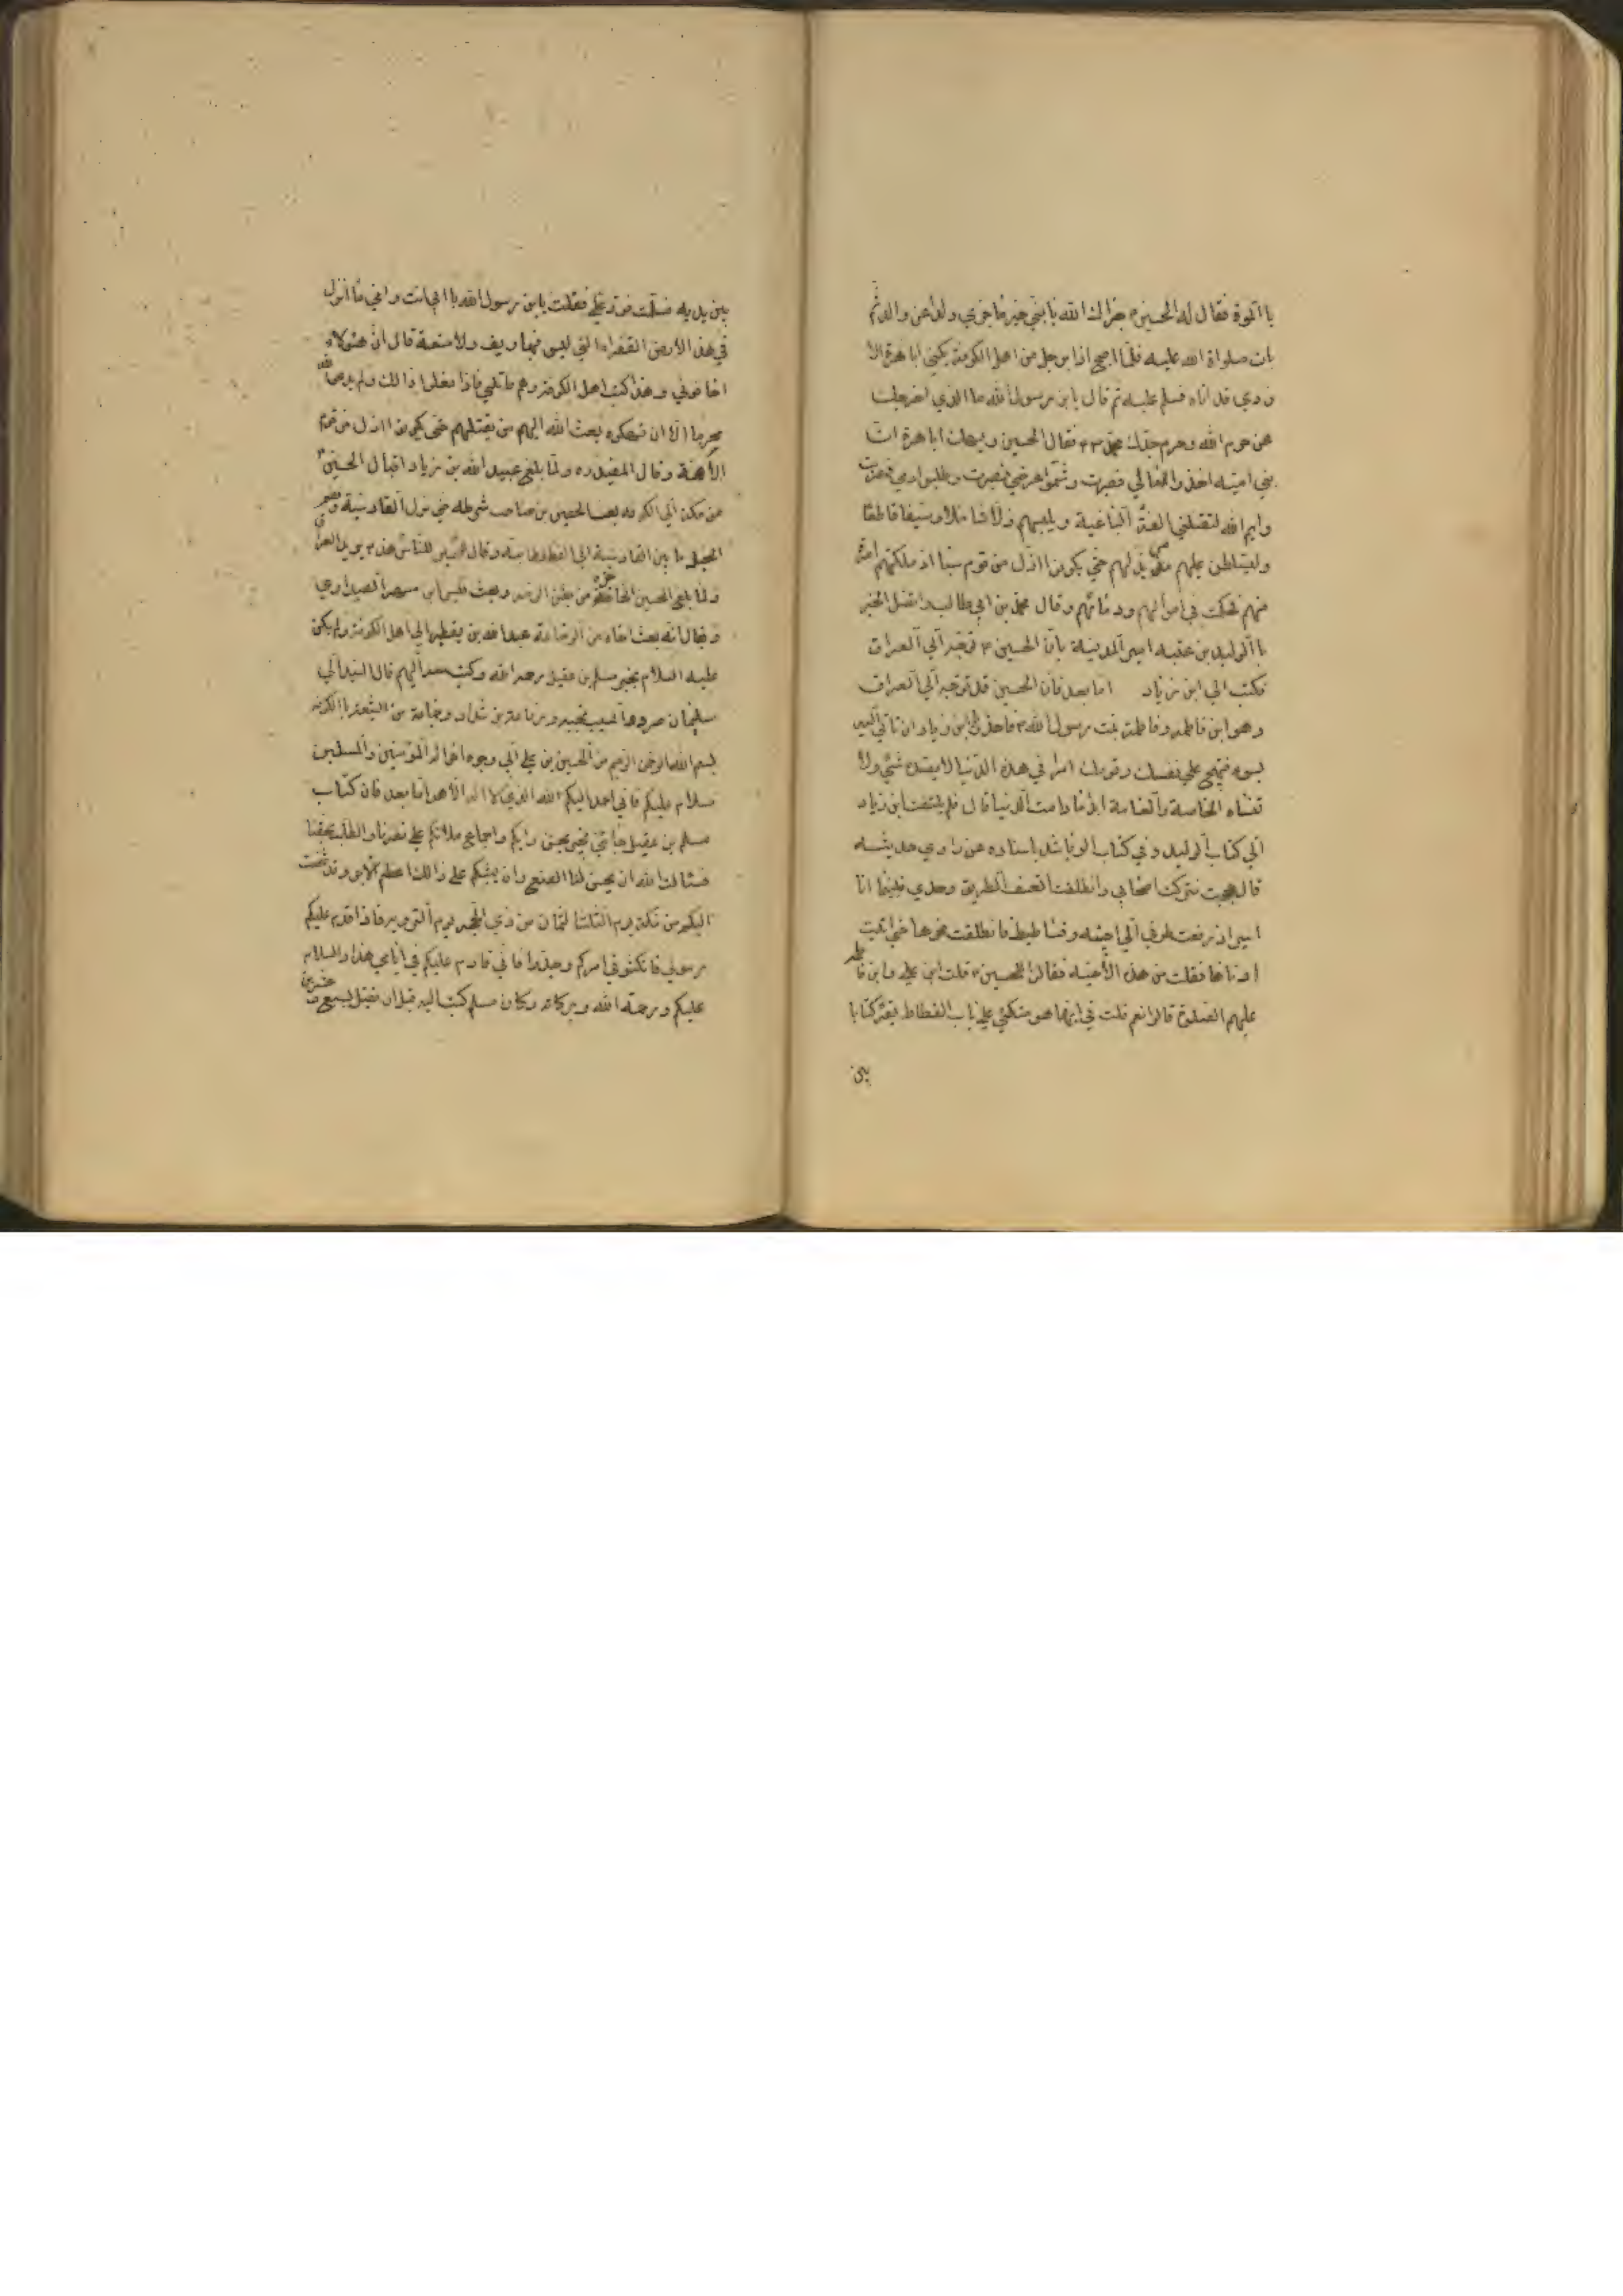 باالموة فقال له الحسين ء جزاك الله يا بني خير ما جزي ولد عن والد ثم
بات صلواة الله عليه فلما اصبح اذا برجل من اهل الكوفة يكني ابا هرة الا
زدي قد اتاه فسلم عليه ثم قال يا بن رسول الله ما الذي اخرجك
عن حرم الله وحرم جدك محمد فقال الحسين ويحك ابا هرة ان
بني اميه اخذوا مالي فصبرت وشتموا عرضي فصبرت وطلبوا دمي فهربت
وايم الله لتقتلني الفئة الباغية ويلبسهم ذلا شاملا وسيفا قاطعا
وليسلطن عليهم من يذلهم حتي يكونن اذل من قوم سبا اذ ملكتهم امراة
منهم فحكمت في اموالهم ودمائهم وقال محمد بن ابي طالب واتصل الخبر
باالوليد بن عتبه امير المدينة بان الحسين ع توجه الي العراق
فكتب الي ابن زياد اما بعد فان الحسين قد توجه الي العراق
وهو ابن فاطمه وفاطمة بنت رسول الله فاحذر يابن زياد ان تاتي اليه
بسوء فتهيج علي نفسك وقومك امرا في هذه الدنيا لا يسده شئ ولا
تنساه الخاصة والعامة ابدا ما دامت الدنيا قال فلم يلتفت ابن زياد
الي كتاب الوليد وفي كتاب الرياشي باسناده عن راوي حديثه
قال حججت فتركت اصحابي وانطلقت اتعسف الطريق وحدي فبينما انا
اسير اذ رفعت طرفي الي اخبيه وفساطيط فانطلقت نحوها حتي اتيت
ادناها فقلت من هذه الأخبيه فقالوا للحسين ع قلت ابن علي وابن فاطمه
عليهم الصلوة قالوا نعم قلت في ايها هو متكئي علي باب الفسطاط يقرء كتابا
بين
بين يديه فسلمت فرد علي فقلت يا بن رسول الله باابي انت وامي ما انزلك
في هذه الارض القفراء التي ليس فيها ريف ولا منعة قال ان هئولاء
اخافوني وهذه كتب اهل الكوفة وهم قاتلي فاذا فعلوا ذالك ولم يدعوا لله
محرما الا ان تهكوه بعث الله اليهم من يقتلهم حتي يكونن اذل من قوم
الأمة وقال المفيد ره ولما بلغ عبيد الله بن زياد اقبال الحسين ع
من مكة الي الكوفه بعث الحصين بن صاحب شرطه حتي نزل القادسية ونظم
الخيل ما بين القادسية الي القطقطانيه وقال للناس هذا يريد العراق
ولما بلغ الحسين الحاجز من بطن الرمه وبعث قيس ابن مسهر الصيداوي
ويقال انه بعث اخاه من الرضاعة عبد الله بن يقطر الي اهل الكوفة ولم يكن
عليه السلام بخبر مسلم بن عقيل رحمه الله وكتب معه اليهم قال السيد الي
سليمان صرد والمسيب نجبه ورفاعة بن شداد وجماعة من الشيعة باالكوفه
بسم الله الرحمن الرحيم من الحسين بن علي الي وجوه اخوانه المؤمنين والمسلمين
سلام عليكم فاني احمد اليكم الله الذي لا اله الا هو اما بعد فان كتاب
مسلم بن عقيل جائني يخبر بحسن رايكم واجماع ملائكم علي نصرنا والطلب بحقنا
فسئالت الله ان يحسن لنا الصنع وان يثيبكم علي ذالك اعظم الاجر وقد شخصت
اليكم من مكة يوم الثلثا لثمان من ذي الحجه يوم التروية فاذا قدم عليكم
رسولي فانكمشوا في امركم وجدوا فاني قادم عليكم في ايامي هذا والسلام
عليكم ورحمة الله وبركاته وكان مسلم كتب اليه قبل ان يقتل لسبع وعشرين